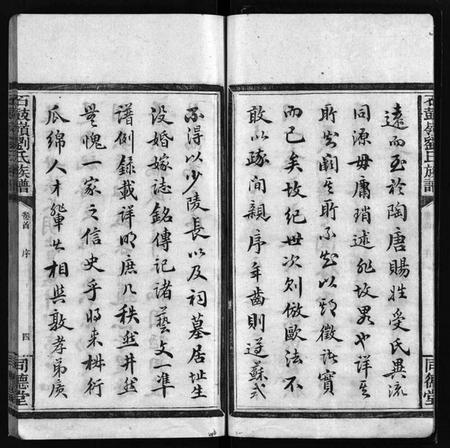 石鼓嶺劉氏族譜
同德堂
遠而至於陶唐賜姓受氏異流
同源毋庸瑣述非故略也詳其
所當闕其所不知以期徵諸實
而已矣故紀世次則倣歐法不
敢以疎間親序年齒則遵蘇式
不得以少陵長以及祠墓居址生
沒婚嫁誌銘傳記諸藝文一準
譜例錄載詳明庶乃秩然井然
無愧一家之信史乎將來椒衍
瓜綿人才輩出相與敦孝弟廣
石鼓嶺劉氏族譜
卷首
序
四
同德堂